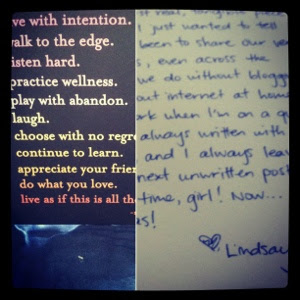 ve with intention.
alk to the edge.
isten hard.
practice wellness.
play with abandon.
laugh.
choose with no regre
continue to learn.
appreciate your frien
do what you love.
live as if this is all the
I just wanted to tell
been to share our
s, even across the
we do without bloggi
out internet at home
rk when I'm on a qu
always written with
and I always leav
next unwritten post
time, girl! Now...
us!
Lindsay